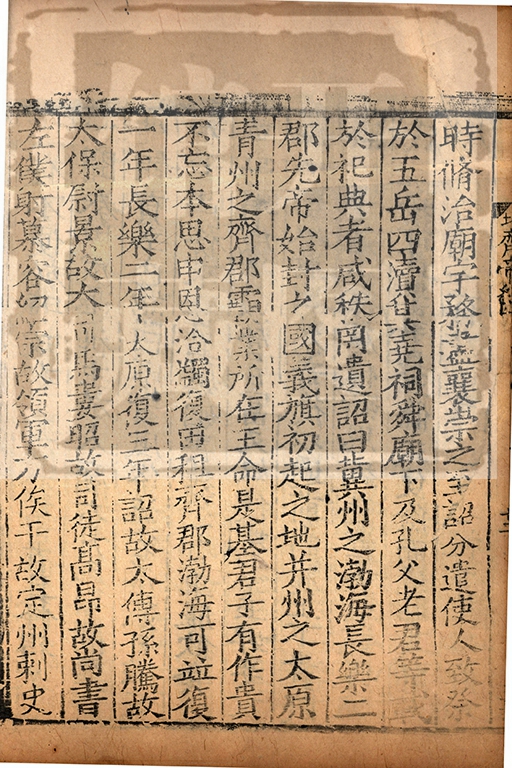 時脩治廟宇務盡襃崇之至詔分遣使人致祭
於五岳四瀆其堯祠舜廟下及孔父老君等載
於祀典者咸秩罔遺詔曰冀州之渤海長樂二
郡先帝始封之國義旗初起之地并州之太原
青州之齊郡霸業所在王命是基君子有作貴
不忘本思申恩洽蠲復田租齊郡渤海可竝復
一年長樂二年太原復三年詔故太傅孫騰故
太保尉景故大司馬婁昭故司徒高昂故尚書
左僕射慕容紹宗故領軍万俟干故定州刺史